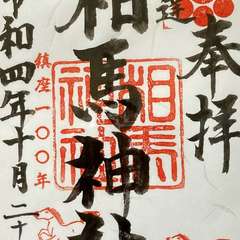 奉拝
道
相馬神社
相馬神社
鎮座一〇〇年
令和四年十月二十